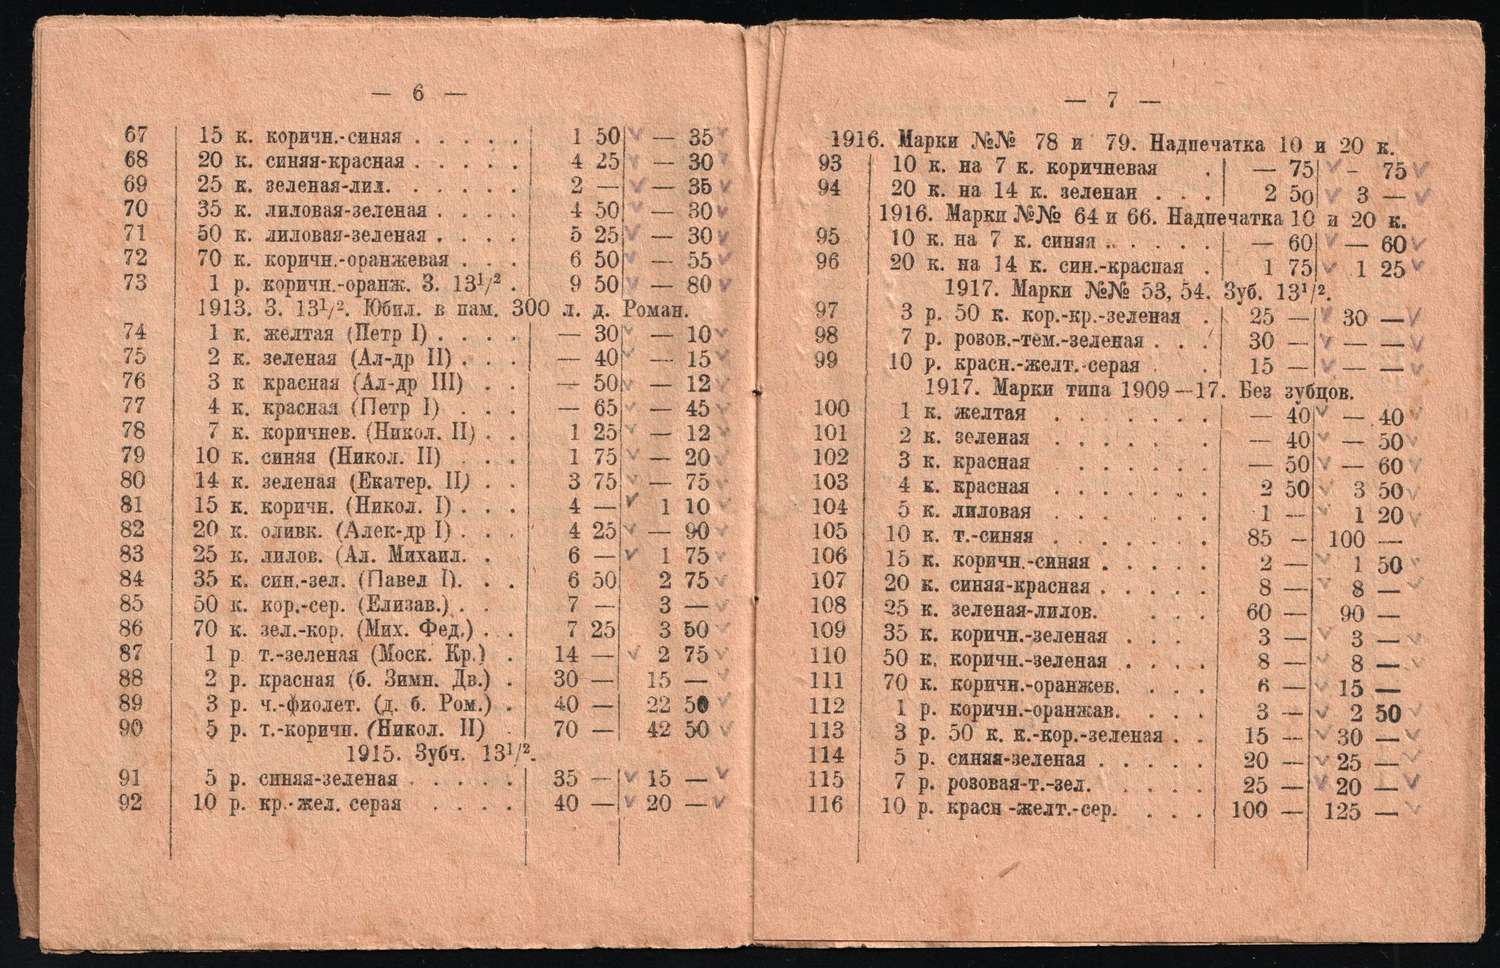 — 6 —
67 15 к. коричн.-синяя . . . . . 1 50 — 35
68 20 к. синяя-красная . . . . . 4 25 — 30
69 25 к. зеленая-лил. . . . . . 2 — — 35
70 35 к. лиловая-зеленая . . . . 4 50 — 30
71 50 к. лиловая-зеленая . . . . 5 25 — 30
72 70 к. коричн.-оранжевая . . . 6 50 — 55
73 1 р. коричн.-оранж. З. 13½ . 9 50 — 80
1913. З. 13½. Юбил. в пам. 300 л. д. Роман.
74 1 к. желтая (Петр I) . . . . — 30 — 10
75 2 к. зеленая (Ал-др II) . . . — 40 — 15
76 3 к красная (Ал-др III) . . — 50 — 12
77 4 к. красная (Петр I) . . . — 65 — 45
78 7 к. коричнев. (Никол. II) . . 1 25 — 12
79 10 к. синяя (Никол. II) . . . 1 75 — 20
80 14 к. зеленая (Екатер. II) . . 3 75 — 75
81 15 к. коричн. (Никол. I) . . . 4 — 1 10
82 20 к. оливк. (Алек-др I) . . . 4 25 — 90
83 25 к. лилов. (Ал. Михаил. . 6 — 1 75
84 35 к. син.-зел. (Павел I). . . 6 50 2 75
85 50 к. кор.-сер. (Елизав.) . . 7 — 3 —
86 70 к. зел.-кор. (Мих. Фед.) . . 7 25 3 50
87 1 р т.-зеленая (Моск. Кр.) . 14 — 2 75
88 2 р. красная (б. Зимн. Дв.) . 30 — 15 —
89 3 р. ч.-фиолет. (д. б. Ром.) . 40 — 22 50
90 5 р. т.-коричн. (Никол. II) 70 — 42 50
1915. Зубч. 13½.
91 5 р. синяя-зеленая . . . . . 35 — 15 —
92 10 р. кр.-жел. серая . . . . 40 — 20 —
— 7 —
1916. Марки №№ 78 и 79. Надпечатка 10 и 20 к.
93 10 к. на 7 к. коричневая . — 75 - 75
94 20 к. на 14 к. зеленая . . . 2 50 3 —
1916. Марки №№ 64 и 66. Надпечатка 10 и 20 к.
95 10 к. на 7 к. синяя . . . . . — 60 — 60
96 20 к. на 14 к. син.-красная . 1 75 1 25
1917. Марки №№ 53, 54. Зуб. 13½.
97 3 р. 50 к. кор.-кр.-зеленая . 25 — 30 —
98 7 р. розов.-тем.-зеленая . . . 30 — — —
99 10 р. красн.-желт.-серая . 15 — — —
1917. Марки типа 1909—17. Без зубцов.
100 1 к. желтая . . . . . . . — 40 — 40
101 2 к. зеленая . . . . . . . — 40 — 50
102 3 к. красная . . . . . . — 50 — 60
103 4 к. красная . . . . . . . 2 50 3 50
104 5 к. лиловая . . . . . . 1 — 1 20
105 10 к. т.-синяя . . . . . . . 85 — 100 —
106 15 к. коричн.-синяя . . . . . 2 — 1 50
107 20 к. синяя-красная . . . . . 8 — 8 —
108 25 к. зеленая-лилов. . . . . 60 — 90 —
109 35 к. коричн.-зеленая . . . . 3 — 3 —
110 50 к. коричн.-зеленая . . . . 8 — 8 —
111 70 к. коричн.-оранжев. . . . 6 — 15 —
112 1 р. коричн.-оранжав. . . . 3 — 2 50
113 3 р. 50 к. к.-кор.-зеленая . . 15 — 30 —
114 5 р. синяя-зеленая . . . . . 20 — 25 —
115 7 р. розовая-т.-зел. . . . . 25 — 20 —
116 10 р. красн -желт.-сер. . . . 100 — 125 —